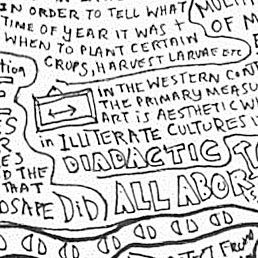 IN ORDER TO TELL WHAT
TIME OF YEAR IT WAS +
WHEN TO PLANT CERTAIN
CROPS, HARVEST LARVAE ETC
OF M
IN THE WESTERN CONT
THE PRIMARY MEASU
ART IS AESTHETIC WH
in ILLITERATE CULTURES
DIADACTIC
ALL ABOR
D THE
THAT
DSAPE DiD